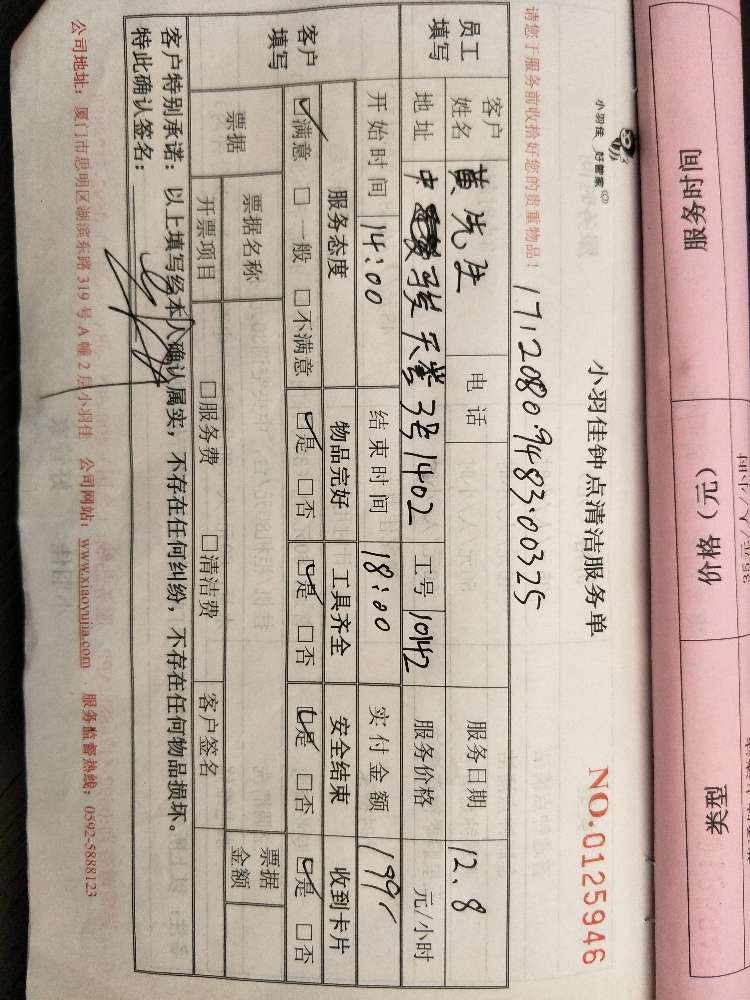 服务时间 价格（元） 类型
小羽佳 好管家
小羽佳钟点清洁服务单
NO.0125946
请您于服务前收拾好您的贵重物品！
1712080948300325
员工填写 客户姓名 黄先生 电话 服务日期 12.8
地址 中 骏天誉 3号1402 工号 10142 服务价格 元/小时
客户填写 开始时间 14:00 结束时间 18:00 实付金额 199
服务态度 物品完好 工具齐全 安全结束 收到卡片
☑满意 □一般 □不满意 ☑是 □否 ☑是 □否 ☑是 □否 ☑是 □否
票据 票据名称 票据金额
开票项目 □服务费 □清洁费 客户签名
客户特别承诺：以上填写经本人确认属实，不存在任何纠纷，不存在任何物品损坏。
特此确认签名：
公司地址：厦门市思明区湖滨东路319号A幢2层小羽佳 公司网站：www.xiaoyujia.com 服务监督热线：0592-5888123